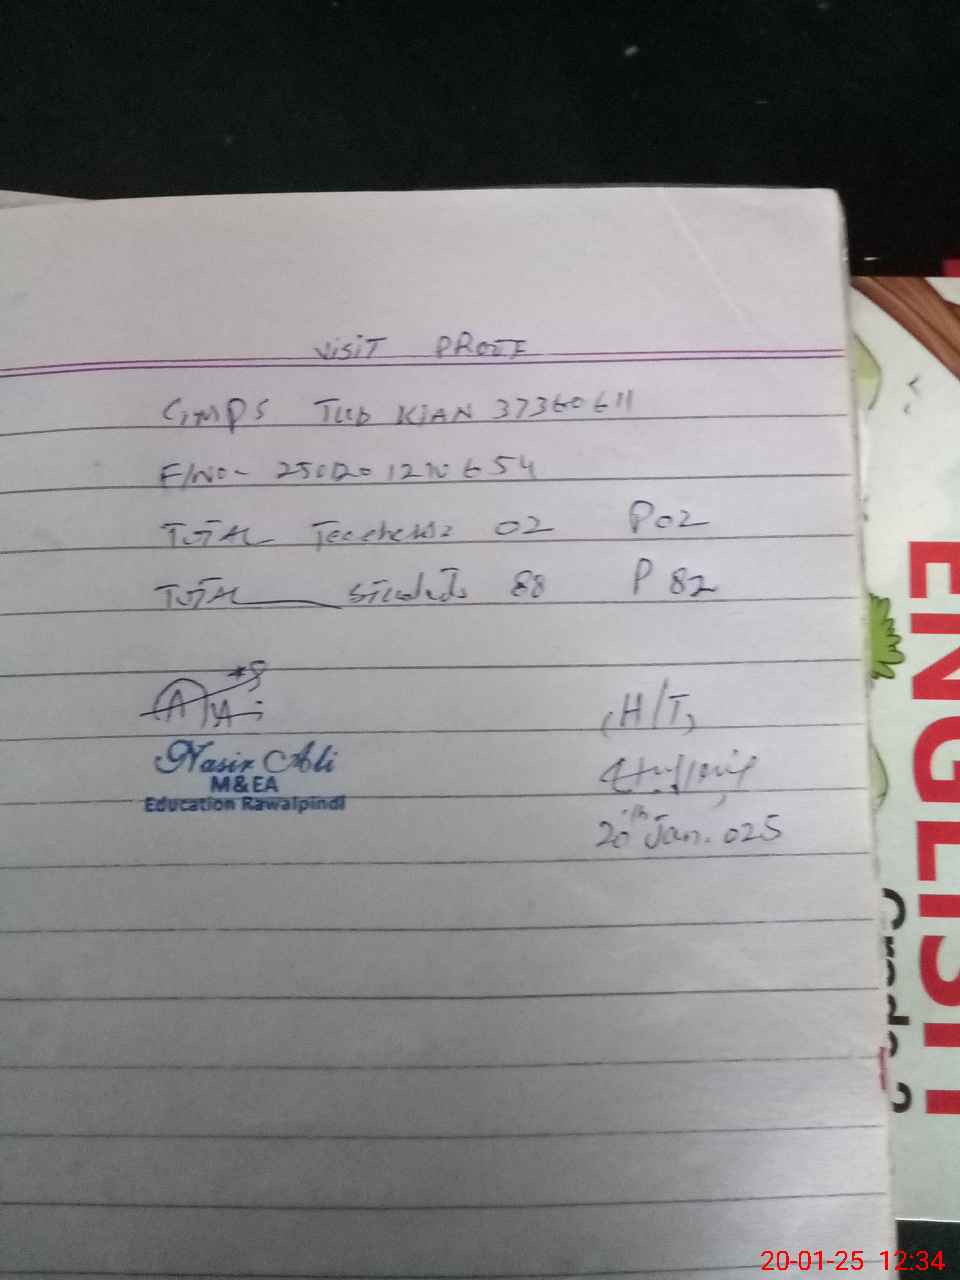 VISIT PROOF
GMPS TUB KIAN 37360611
F/NO- 2501201210654
TOTAL Teachers 02 P02
TOTAL Students 88 P 82
Nasir Ali
M&EA
Education Rawalpindi
(H/T)
20th Jan. 025
ENGLISH
Grade 2
20-01-25 12:34